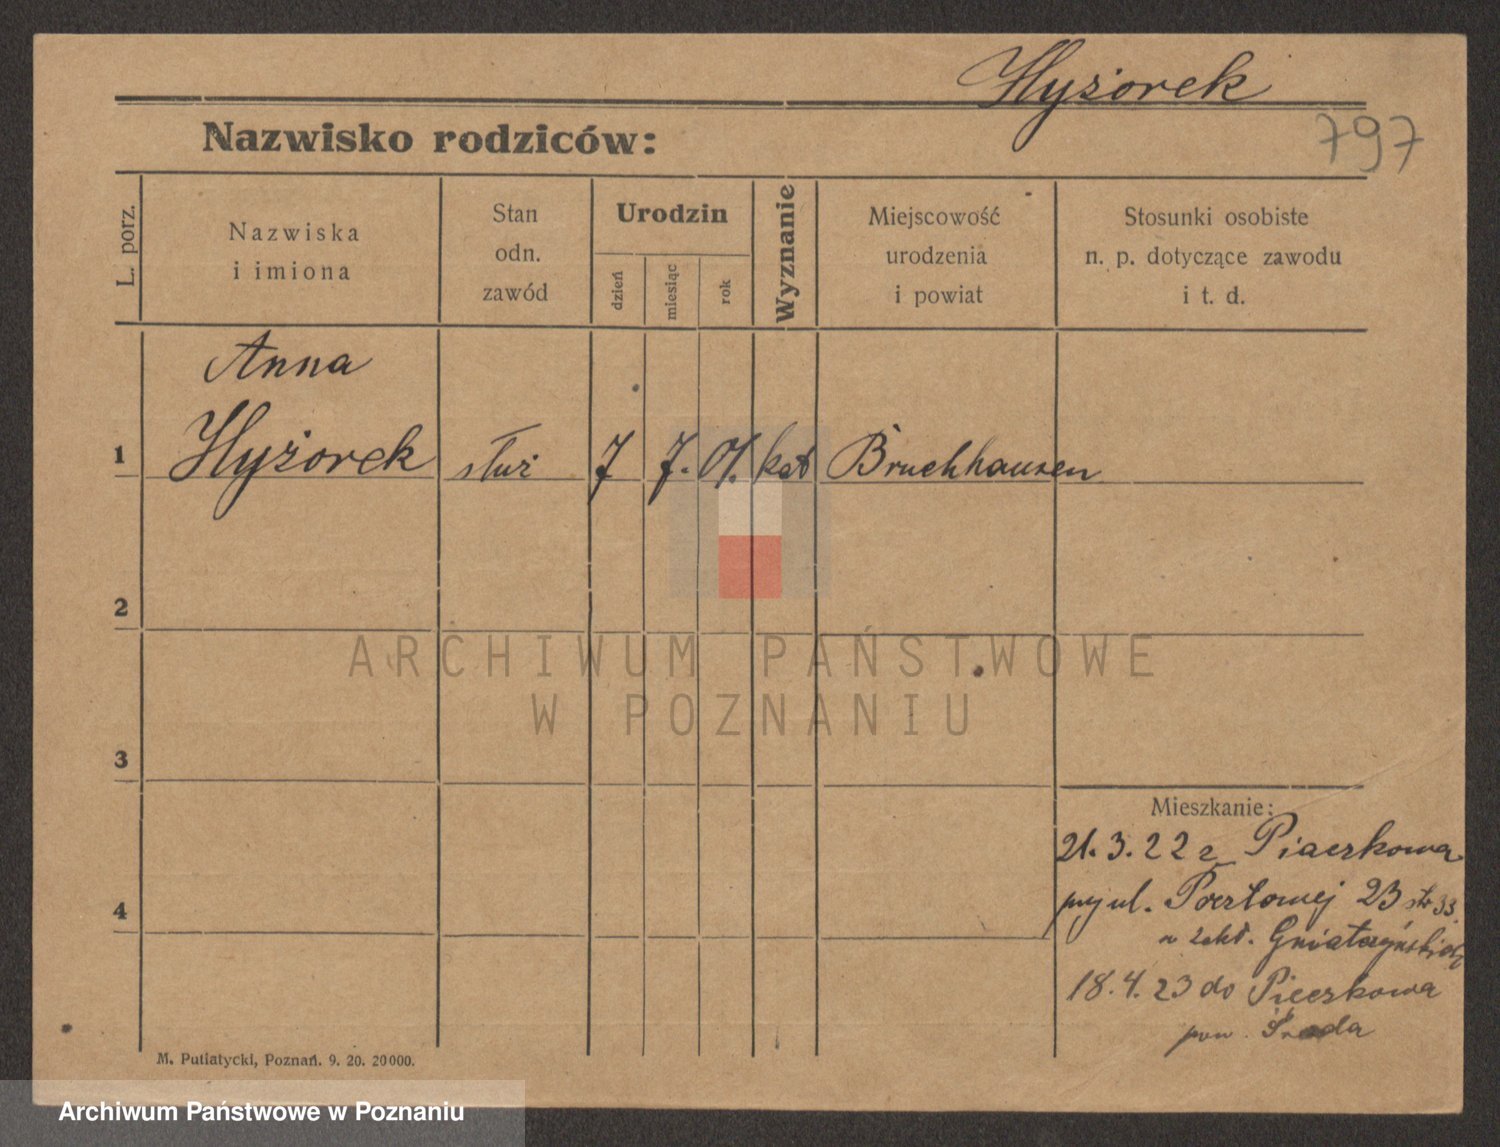 Hyżorek
797
Nazwisko rodziców:
L. porz.
Nazwiska
i imiona
Stan
odn.
zawód
Urodzin
dzień
miesiąc
rok
Wyznanie
Miejscowość
urodzenia
i powiat
Stosunki osobiste
n. p. dotyczące zawodu
i t. d.
Anna
1 Hyżorek służ 7 7. 01. kat Bruchhausen
2
ARCHIWUM PAŃSTWOWE
W POZNANIU
3
Mieszkanie:
21. 3. 22 z Piaczkowa
przy ul. Pocztowej 23 str 33.
u Gniatczyńskiej
4
18. 4. 23 do Pieczkowa
pow. Środa
M. Putiatycki, Poznań. 9. 20. 20000.
Archiwum Państwowe w Poznaniu